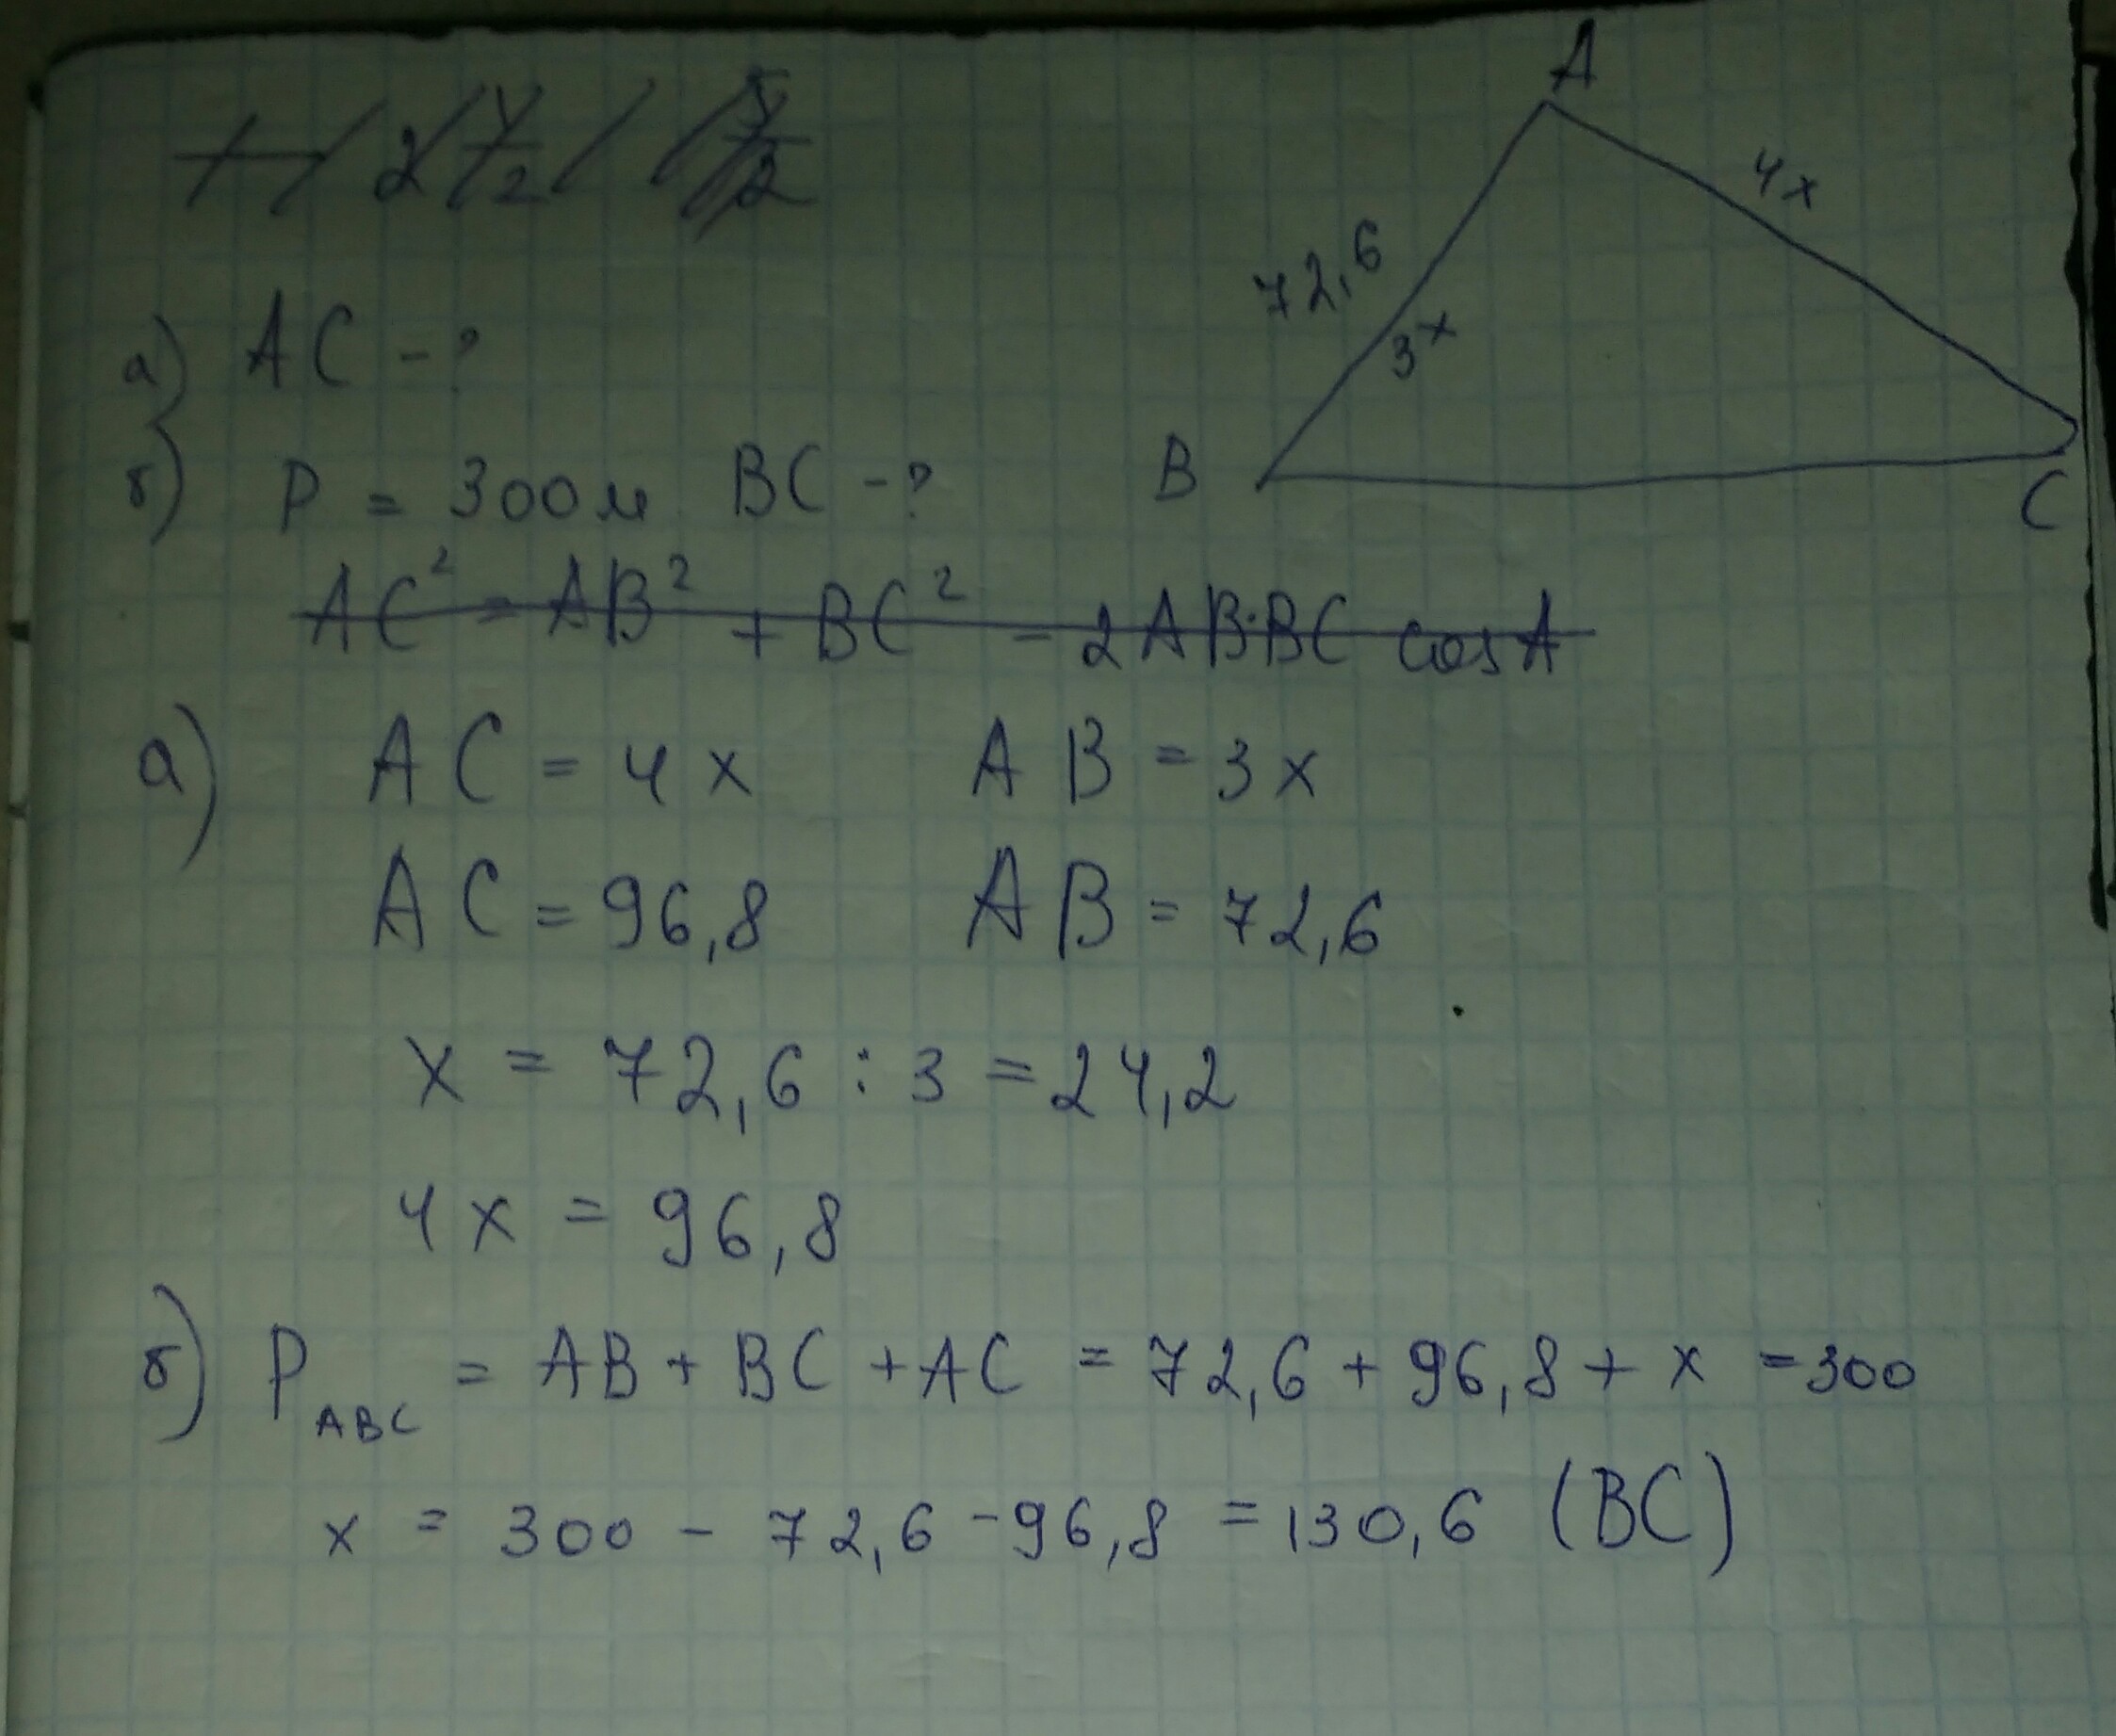 A
4x
72,6
3x
B
C
а) AC - ?
б) P = 300м BC - ?
AC² = AB² + BC² - 2AB·BC cosA
а) AC = 4x AB = 3x
AC = 96,8 AB = 72,6
x = 72,6 : 3 = 24,2
4x = 96,8
б) P ABC = AB + BC + AC = 72,6 + 96,8 + x = 300
x = 300 - 72,6 - 96,8 = 130,6 (BC)